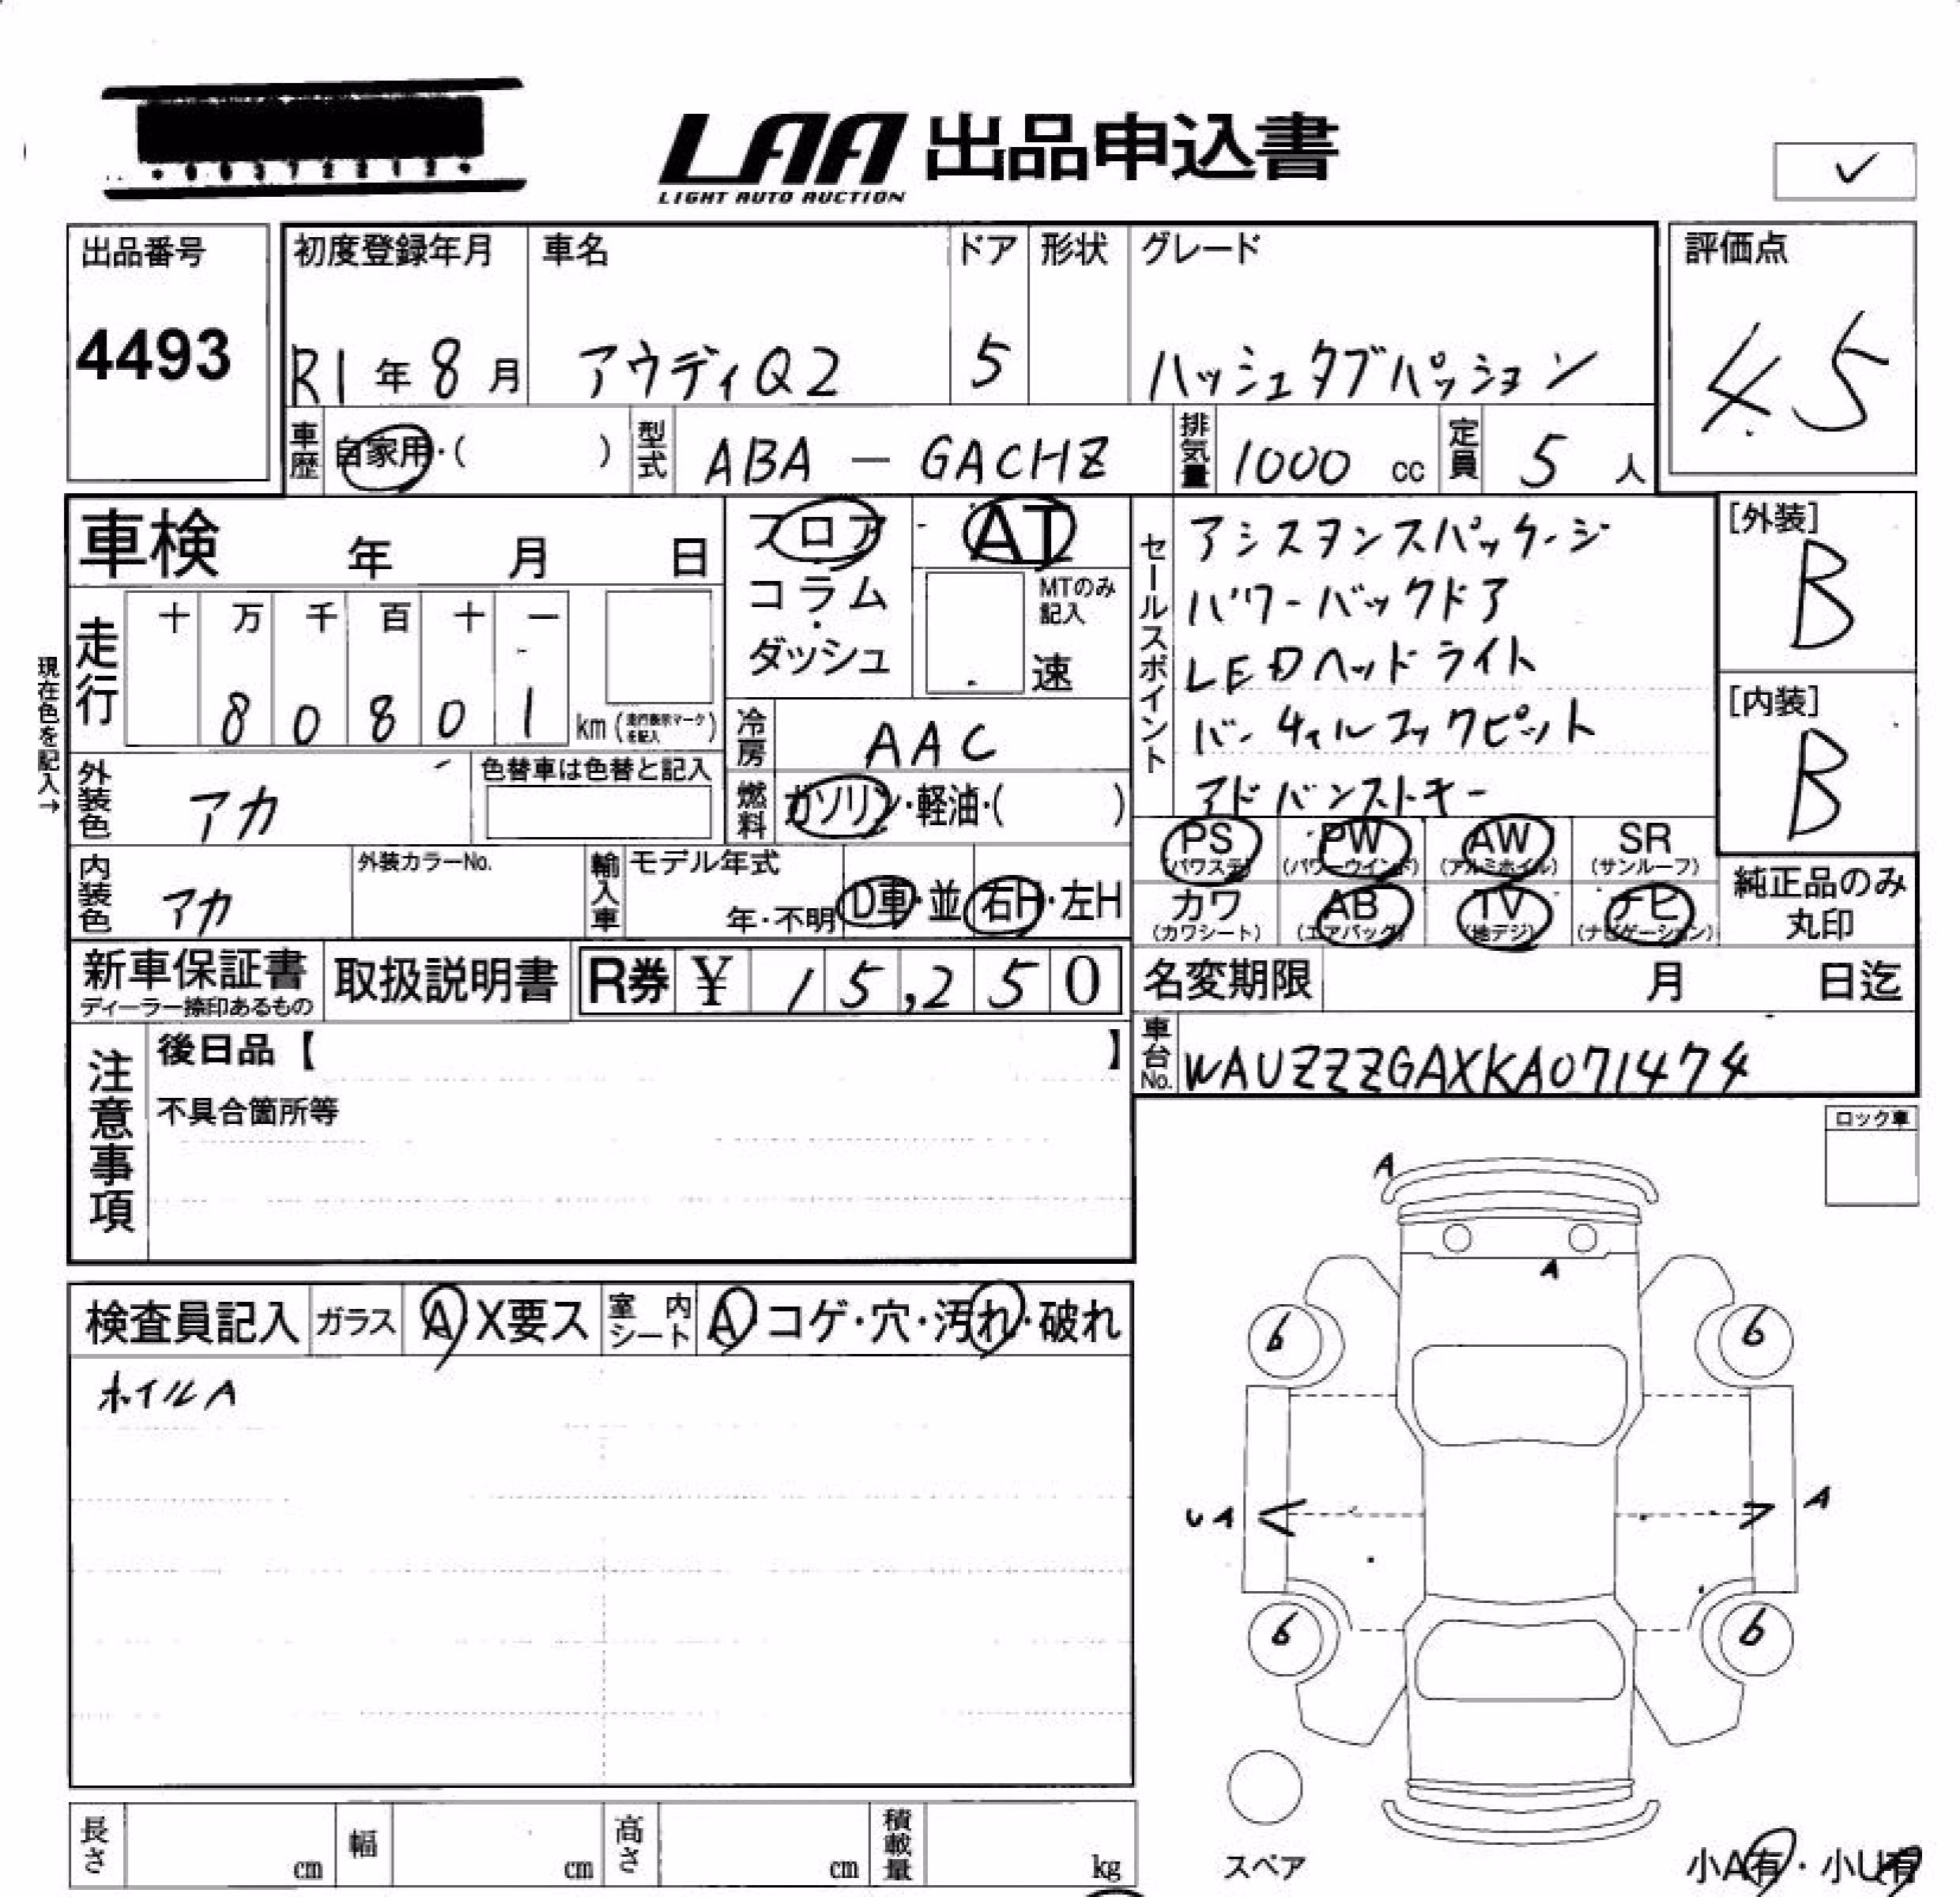 LAA 出品申込書
LIGHT AUTO AUCTION
✓
出品番号
4493
初度登録年月
R1年8月
車名
アウディQ2
ドア
5
形状
グレード
ハッシュタグパッション
評価点
4.5
車歴
自家用・( )
型式
ABA - GACHZ
排気量
1000 cc
定員
5 人
車検 年 月 日
フロア
コラム・
ダッシュ
AT
MTのみ記入
速
セールスポイント
アシスタンスパッケージ
パワーバックドア
LEDヘッドライト
バーチャルコックピット
アドバンストキー
[外装]
B
[内装]
B
走行
十 万 千 百 十 一
8 0 8 0 1 km (走行表示マークを記入)
現在色を記入→
冷房
AAC
外装色
アカ
色替車は色替と記入
燃料
ガソリン・軽油・( )
PS (パワステ)
PW (パワーウインド)
AW (アルミホイル)
SR (サンルーフ)
カワ (カワシート)
AB (エアバッグ)
TV (地デジ)
ナビ (ナビゲーション)
純正品のみ
丸印
内装色
アカ
外装カラーNo.
輸入車
モデル年式
年・不明
D車・並
右H・左H
新車保証書
ディーラー捺印あるもの
取扱説明書
R券 ¥ 15,250
名変期限 月 日迄
車台No.
WAUZZZGAXKA071474
注意事項
後日品【 】
不具合箇所等
ロック車
検査員記入
ガラス
A X要ス
室内シート
A コゲ・穴・汚れ・破れ
ホイルA
A
A
6
6
UA <
> A
6
6
スペア
小A有・小U有
長さ cm
幅 cm
高さ cm
積載量 kg